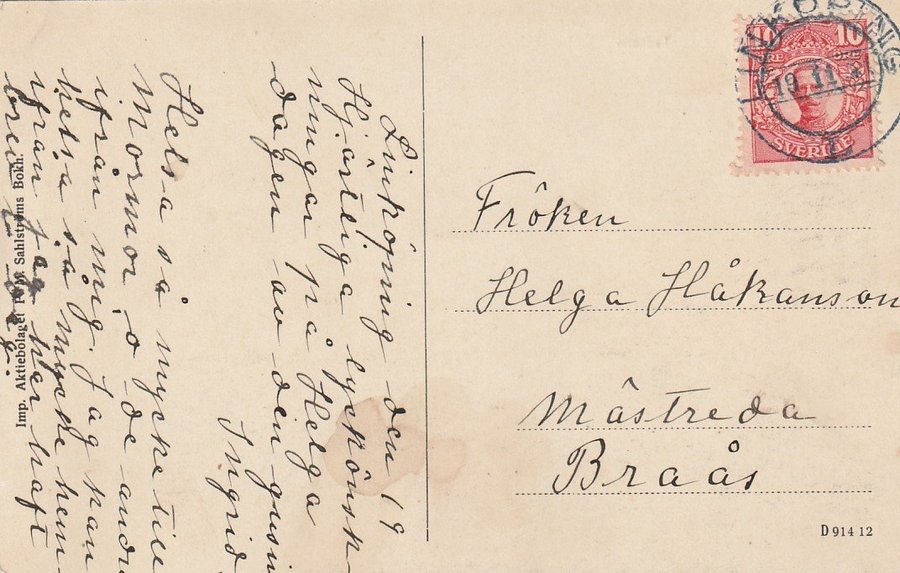 Linköping den 19
Hjärtliga lyckönsk-
ningar på Helga
dagen av den
Ingrid
Helsa så mycke till
Mormor o de andr
ifrån mig. Jag kan
helsa så mycke hem-
ifrån jag her haft
bref
Imp. Aktiebolaget Sahlströms Bokh.
LINKÖPING
19 11
10 10
SVERIGE
Fröken
Helga Håkanson
Måstreda
Braås
D 914 12